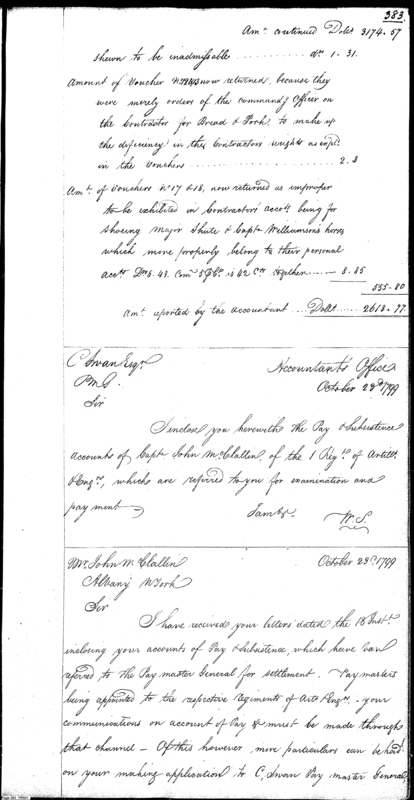 383
Amt continued Dolls 3174.57
shewn to be inadmissable ........ drs 1.31.
Amount of Voucher now returned, because they
were merely orders of the commandg Officer on
the Contractor for Bread & Pork, to make up
the deficiency in the Contractors weights as expld
in the Vouchers ........ 2.3
Amt of Vouchers No 17 & 18, now returned as improper
to be exhibited in Contractors accots being for
shoeing Major Shute & Captn Williamson's horses
which more properly belong to their personal
accots Drs 8.43. is 42 Cts together ...... 8.85
555.80
Amt reported by the accountant Dolls 2618.77
C Swan Esqr Accountant's Office
P M G. October 23d 1799
Sir
I inclose you herewith the Pay & Subsistence
accounts of Captn John McClallen, of the 1 Regt of Artills
& Engrs, which are referred to you for examination and
payment
I am &c. W. S.
Mr John McClallin October 23d 1799
Albany N York
Sir
I have received your letters dated the 18 Instt
inclosing your accounts of Pay & Subsistence, which have been
referred to the Pay master General for settlement. Pay masters
being appointed to the respective regiments of Arts & Engrs. your
communications on account of Pay &c must be made through
that channel - Of this however, more particulars can be had
on your making application to C, Swan Pay master General